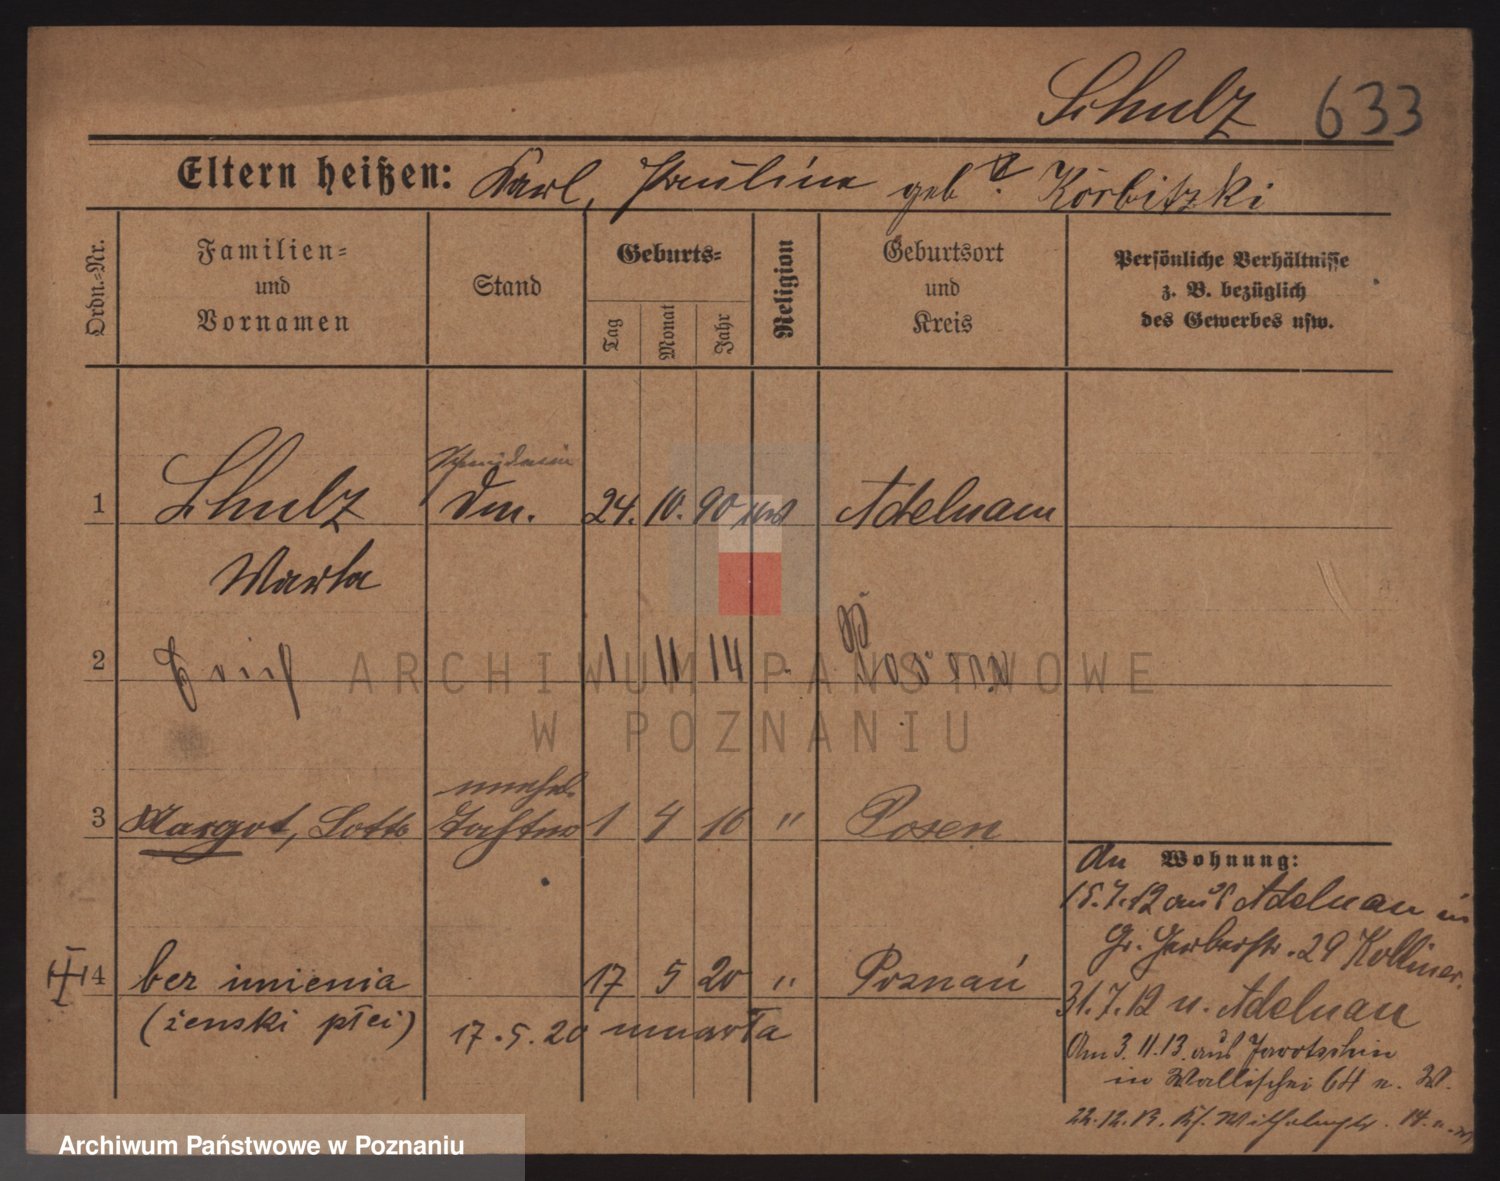 Schulz 633
Eltern heißen: Karl, Pauline geb. Körbitzki
Ordn.-Nr.
Familien-
und
Vornamen
Stand
Geburts-
Tag
Monat
Jahr
Religion
Geburtsort
und
Kreis
Persönliche Verhältnisse
z. B. bezüglich
des Gewerbes usw.
Schneiderin
1 Schulz Dm. 24. 10. 90 Adelnau
Marta
2 Erich 1 11 14 Posen
unehel.
3 Margot, Lotte Tochter 1 4 16 " Posen
An Wohnung:
15.7.12 aus Adelnau in
Gr. Gerberstr. 29
4 bez imienia 17 5 20 " Poznań
31.7.12 n. Adelnau
(żenski płci) 17.5.20 umarła
Am 3.11.13. aus Jarotschin
in Wallischei 64 n. W.
22.12.13.
ARCHIWUM PAŃSTWOWE
W POZNANIU
Archiwum Państwowe w Poznaniu